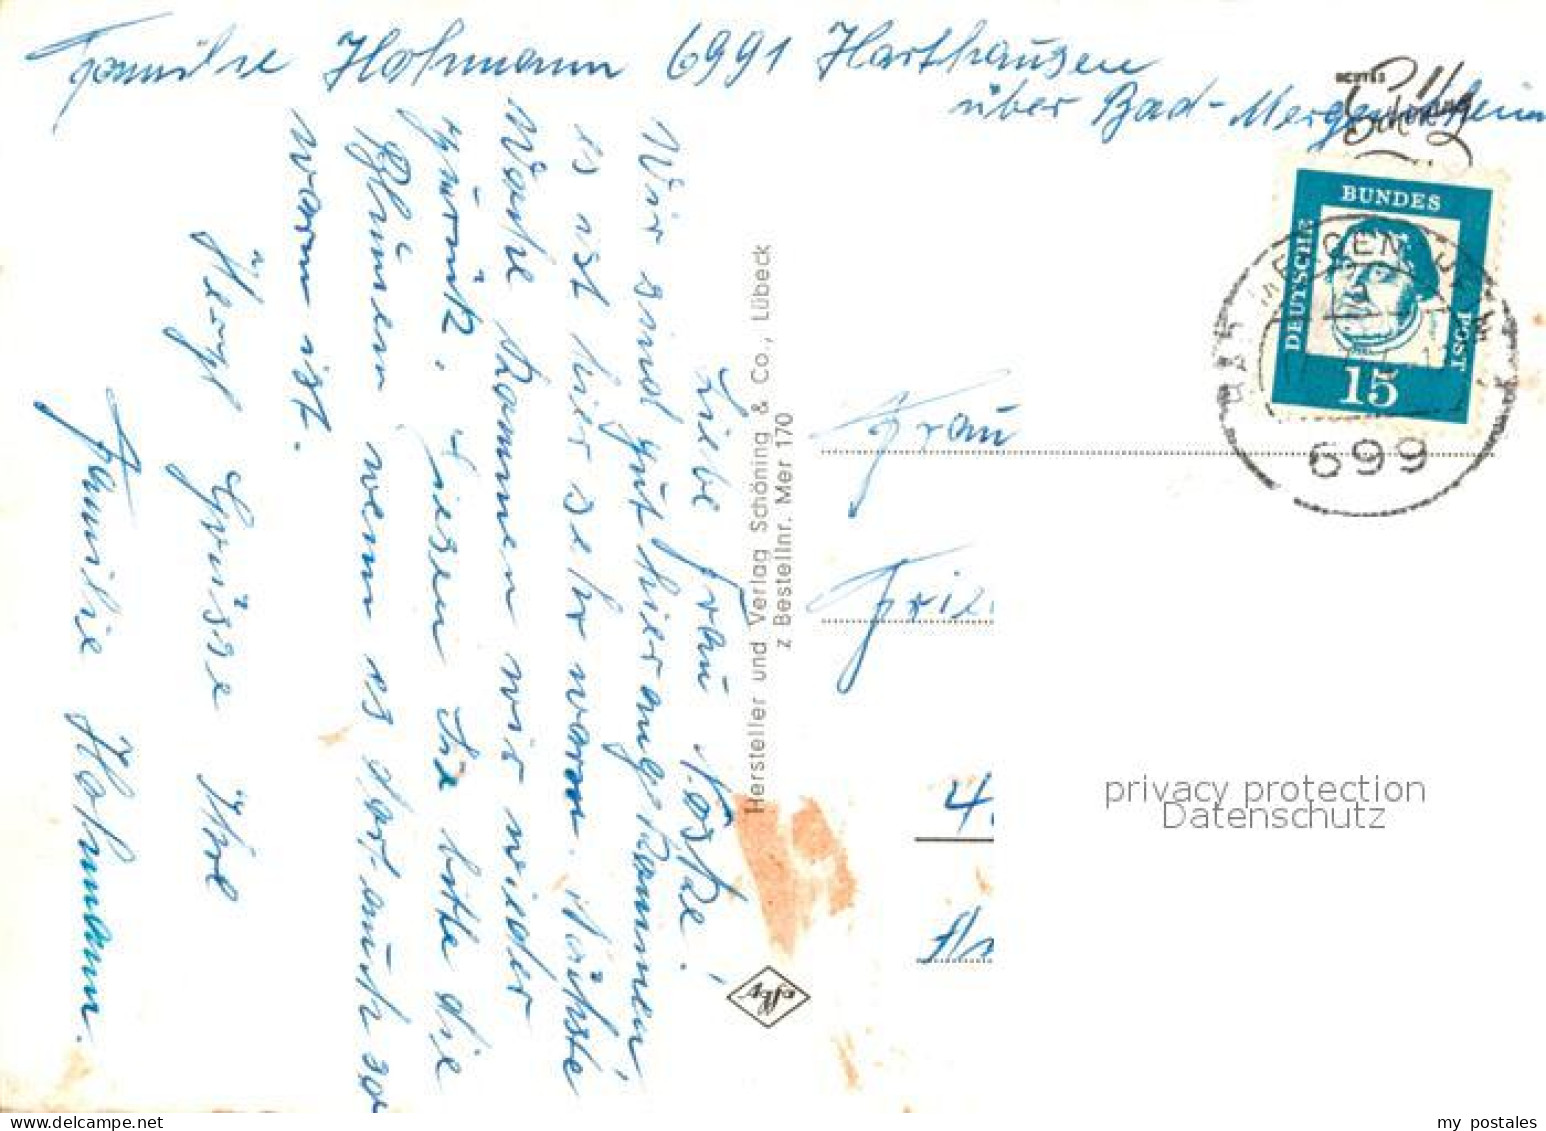 Familie Hohmann 6991 Harthausen
über Bad-Mergentheim
Liebe Frau
Wir sind gut hier angekommen
es ist hier sehr warm. Nächste
Woche kommen wir wieder
zurück. Giesen Sie bitte die
Blumen wenn es dort auch so
warm ist.
Herzl Grüsse Ihre
Familie Hohmann.
Hersteller und Verlag Schöning & Co., Lübeck
z Bestellnr. Mer 170
DEUTSCHE
BUNDES
POST
15
699
Frau
privacy protection
Datenschutz
my postales